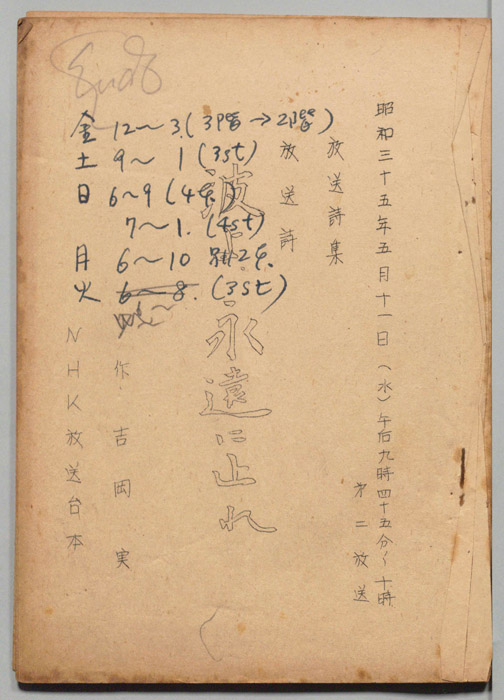 昭和三十五年五月十一日(水)午后九時四十五分~十時
第二放送
放送詩集
放送詩
波よ永遠に止れ
作 吉岡実
NHK放送台本
金 12~3.(3階→2階)
土 9~1(3st)
日 6~9(4
7~1.(4st)
月 6~10
火 6~8.(3st)